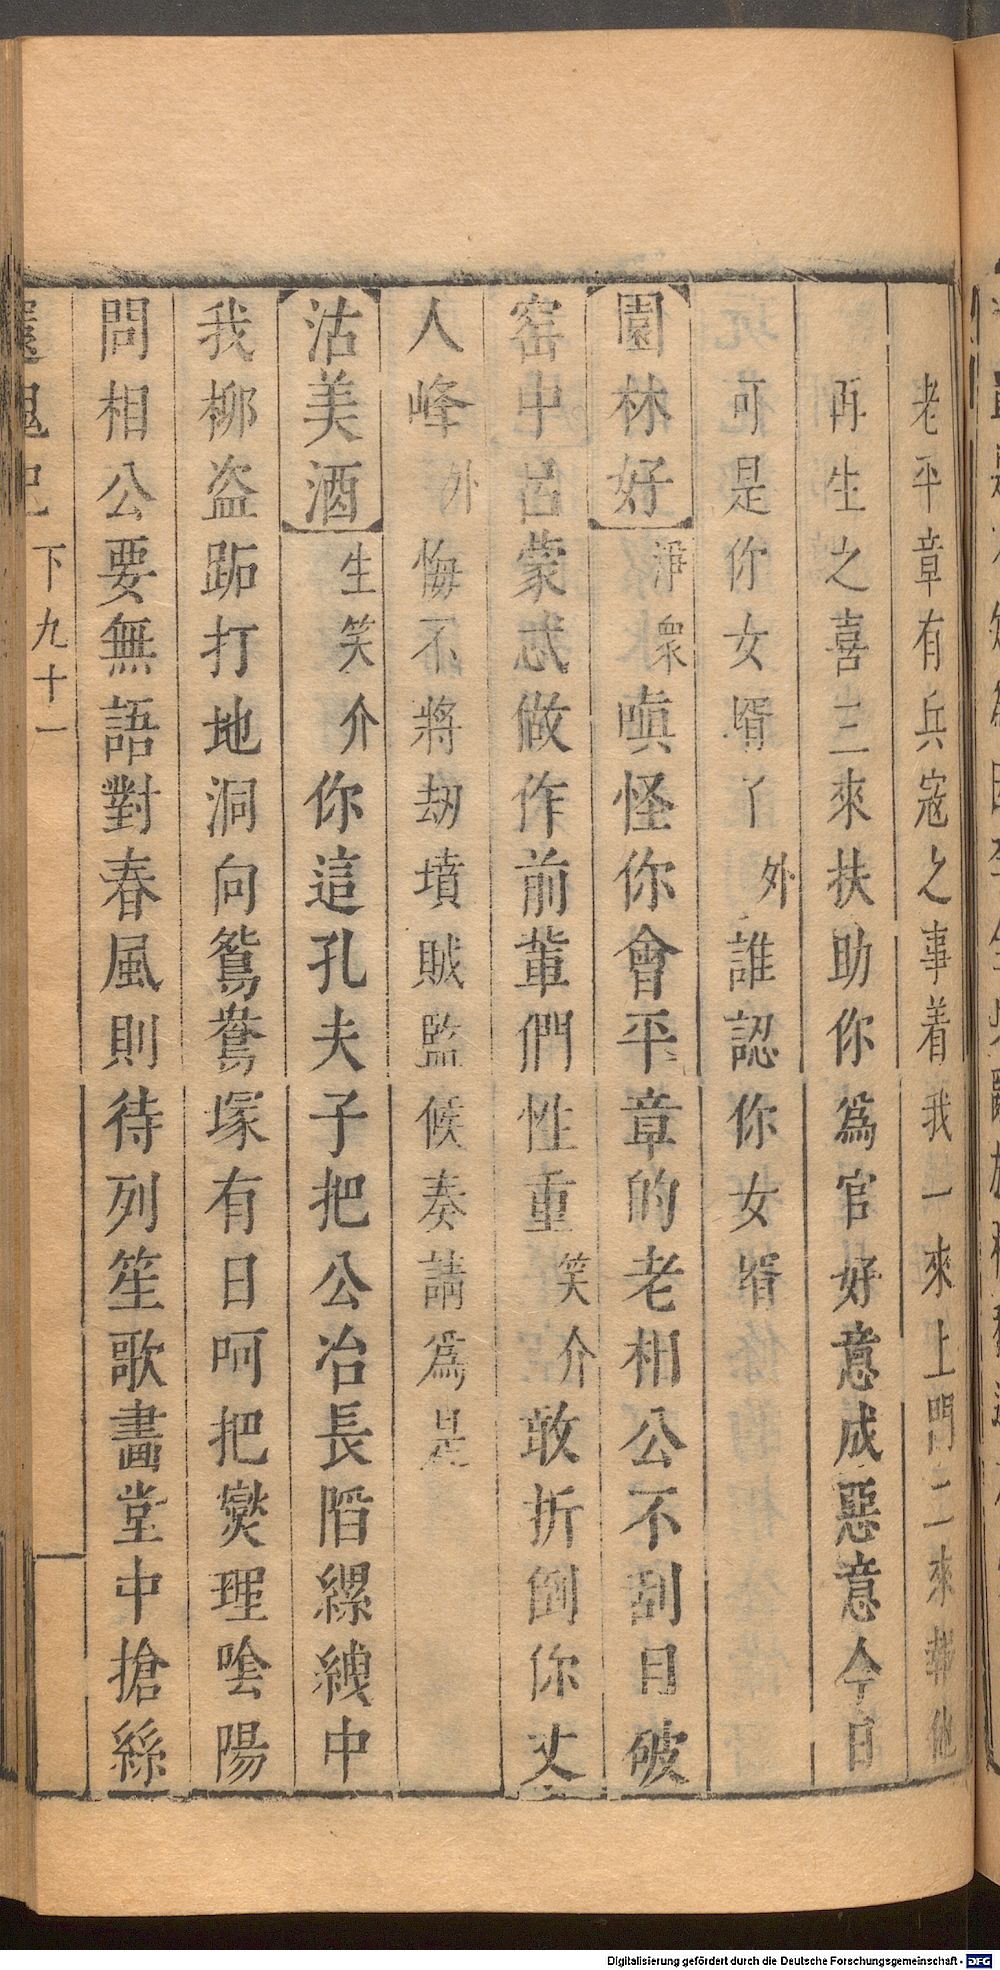 老平章有兵寇之事着我一來上門二來報他
再生之喜三來扶助你爲官好意成惡意今日
可是你女壻了外誰認你女壻
園林好淨衆嗔怪你會平章的老相公不刮目破
窑中呂蒙忒做作前輩們性重笑介敢折倒你丈
人峰外悔不將劫墳賊監候奏請爲是
沽美酒生笑介你這孔夫子把公冶長陷縲絏中
我柳盜跖打地洞向鴛鴦塚有日呵把爕理陰陽
問相公要無語對春風則待列笙歌畵堂中搶絲
還魂記
下九十一
Digitalisierung gefördert durch die Deutsche Forschungsgemeinschaft - DFG